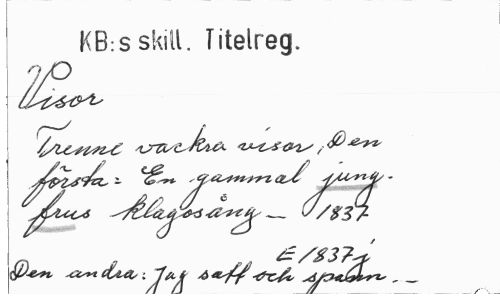 KB:s skill. Titelreg.
Visor
Trenne vackra visor, Den
första: En gammal jung-
frus klagosång _ 1837
E 1837j
Den andra: Jag satt och spann. _